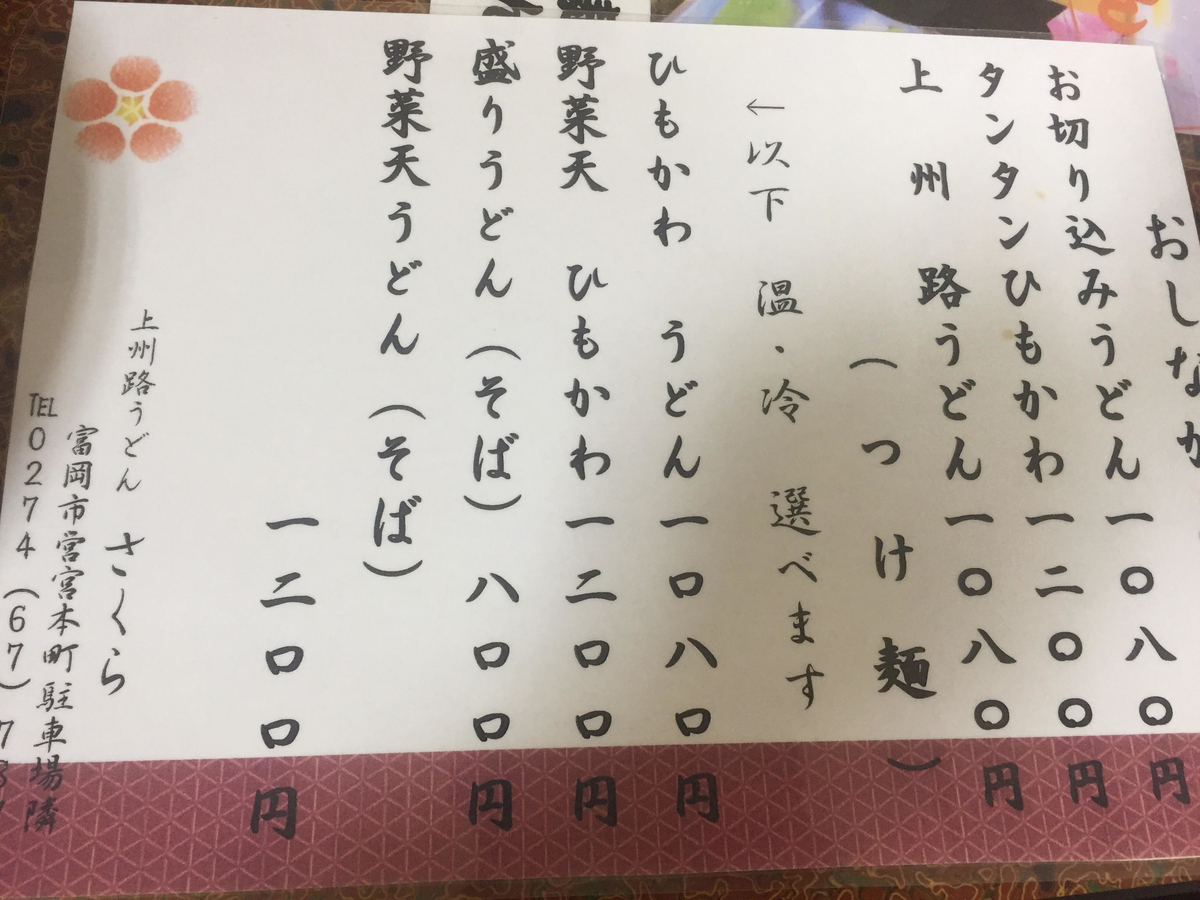 おしなが
お切り込みうどん一〇八〇円
タンタンひもかわ一二〇〇円
上州路うどん一〇八〇円
（つけ麺）
←以下 温・冷 選べます
ひもかわ うどん一〇八〇円
野菜天 ひもかわ一二〇〇円
盛りうどん（そば）八〇〇円
野菜天うどん（そば）
一二〇〇円
上州路うどん さくら
富岡市営宮本町駐車場隣
TEL0274（67）7